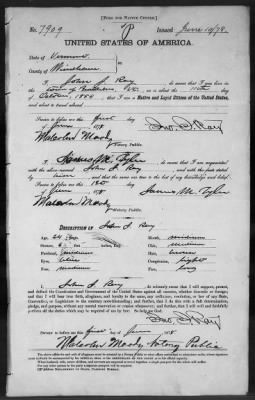 [FORM FOR NATIVE CITIZEN.]
No. 7909
Issued June 10/78
UNITED STATES OF AMERICA.
State of Vermont
County of Windham
I, John S. Ray do swear that I was born in
the town of in on or about the 11th day
of October, 1854 that I am a Native and Loyal Citizen of the United States,
and about to travel abroad
Sworn to before me this first day
of June 1878
Jno. S. Ray
Malcolm Moody
Notary Public.
I, James M. Tyler do swear that I am acquainted
with the above named John S. Ray and with the facts
stated by him and that the same are true to the best of my knowledge and belief.
Sworn to before me this 1st day
of June 1878
James M. Tyler
Malcolm Moody
Notary Public.
DESCRIPTION OF John S. Ray
Age, 24 years
Mouth, medium
Stature, 6 feet inches, Eng.
Chin, medium
Forehead, medium
Hair, brown
Eyes, blue
Complexion, light
Nose, medium
Face, long
I, John S. Ray do solemnly swear that I will support, protect,
and defend the Constitution and Government of the United States against all enemies, whether domestic or foreign;
and that I will bear true faith, allegiance, and loyalty to the same, any ordinance, resolution, or law of any State,
Convention, or Legislature to the contrary notwithstanding; and further, that I do this with a full determination,
pledge, and purpose, without any mental reservation or evasion whatsoever; and further, that I will well and faithfully
perform all the duties which may be required of me by law. So help me God.
Jno. S. Ray
Sworn to before me this first day of June 1878
Malcolm Moody Notary Public